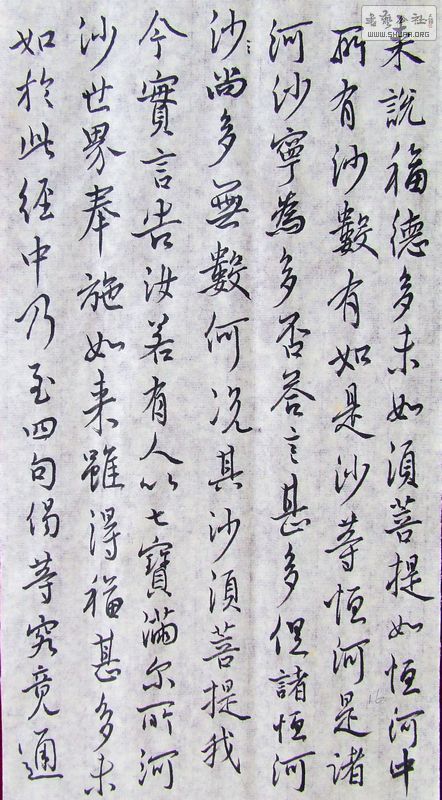 来說福德多未如須菩提如恒河中
所有沙數有如是沙等恒河是諸
河沙寧為多否答言甚多但諸恒河
沙尚多無數何况其沙須菩提我
今實言告汝若有人以七寶滿尔所河
沙世界奉施如来雖得福甚多未
如於此經中乃至四句偈等究竟通
WWW.SHWPR.ORG
16